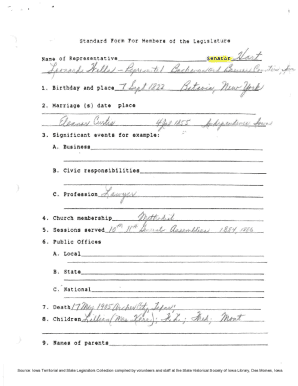 Standard Form For Members of the Legislature
Name of Representative Senator Hart
Leonardo - Represented Buchanan and Counties, Iowa
1. Birthday and place 7 Sept 1822 Batavia, New York
2. Marriage (s) date place
Eleanor Curtis 4 1855 Independence, Iowa
3. Significant events for example:
A. Business
B. Civic responsibilities
C. Profession Lawyer
4. Church membership Methodist
5. Sessions served 10th, 11th General Assemblies 1864, 1866
6. Public Offices
A. Local
B. State
C. National
7. Death 17 May 1905 Archer City, Texas
8. Children Lillian (Mrs. ); ; ; Mont
9. Names of parents
Source: Iowa Territorial and State Legislators Collection compiled by volunteers and staff at the State Historical Society of Iowa Library, Des Moines, Iowa.